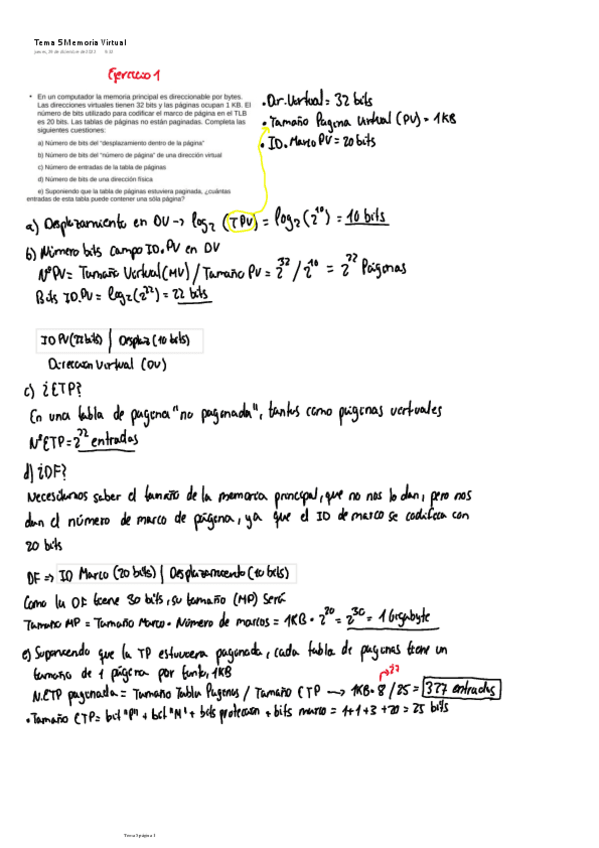 Tema 5 Memoria Virtual
Ejercicio 1
• En un computador la memoria principal es direccionable por bytes.
Las direcciones virtuales tienen 32 bits y las páginas ocupan 1 KB. El
número de bits utilizado para codificar el marco de página en el TLB
es 20 bits. Las tablas de páginas no están paginadas. Completa las
siguientes cuestiones:
a) Número de bits del "desplazamiento dentro de la página"
b) Número de bits del "número de página" de una dirección virtual
c) Número de entradas de la tabla de páginas
d) Número de bits de una dirección física
e) Suponiendo que la tabla de páginas estuviera paginada, ¿cuántas
entradas de esta tabla puede contener una sóla página?
• Dir. Virtual = 32 bits
• Tamaño Pagina Virtual (PV) = 1KB
• ID. Marco PV = 20 bits
a) Desplazamiento en DV → log₂ (TPV) = log₂ (2¹⁰) = 10 bits
b) Número bits campo ID. PV en DV
NºPV = Tamaño Virtual (MV) / Tamaño PV = 2³² / 2¹⁰ = 2²² Páginas
Bits ID.PV = log₂ (2²²) = 22 bits
ID PV (22 bits) | Desplaz (10 bits)
Dirección Virtual (DV)
c) ¿ETP?
En una tabla de pagina "no paginada", tantas como páginas virtuales
NºETP = 2²² entradas
d) ¿DF?
Necesitamos saber el tamaño de la memoria principal, que no nos lo dan, pero nos
dan el número de marco de página, ya que el ID de marco se codifica con
20 bits
DF => ID Marco (20 bits) | Desplazamiento (10 bits)
Como la DF tiene 30 bits, su tamaño (MP) será
Tamaño MP = Tamaño Marco · Número de marcos = 1KB · 2²⁰ = 2³⁰ = 1 Gigabyte
e) Suponiendo que la TP estuviera paginada, cada tabla de paginas tiene un
tamaño de 1 página por tanto, 1KB
N. ETP paginada = Tamaño Tabla Paginas / Tamaño ETP → 1KB · 8 / 25 = 327 entradas
• Tamaño ETP = bit "P" + bit "M" + bits protección + bits marco = 1+1+3+20 = 25 bits
Tema 5 página 1